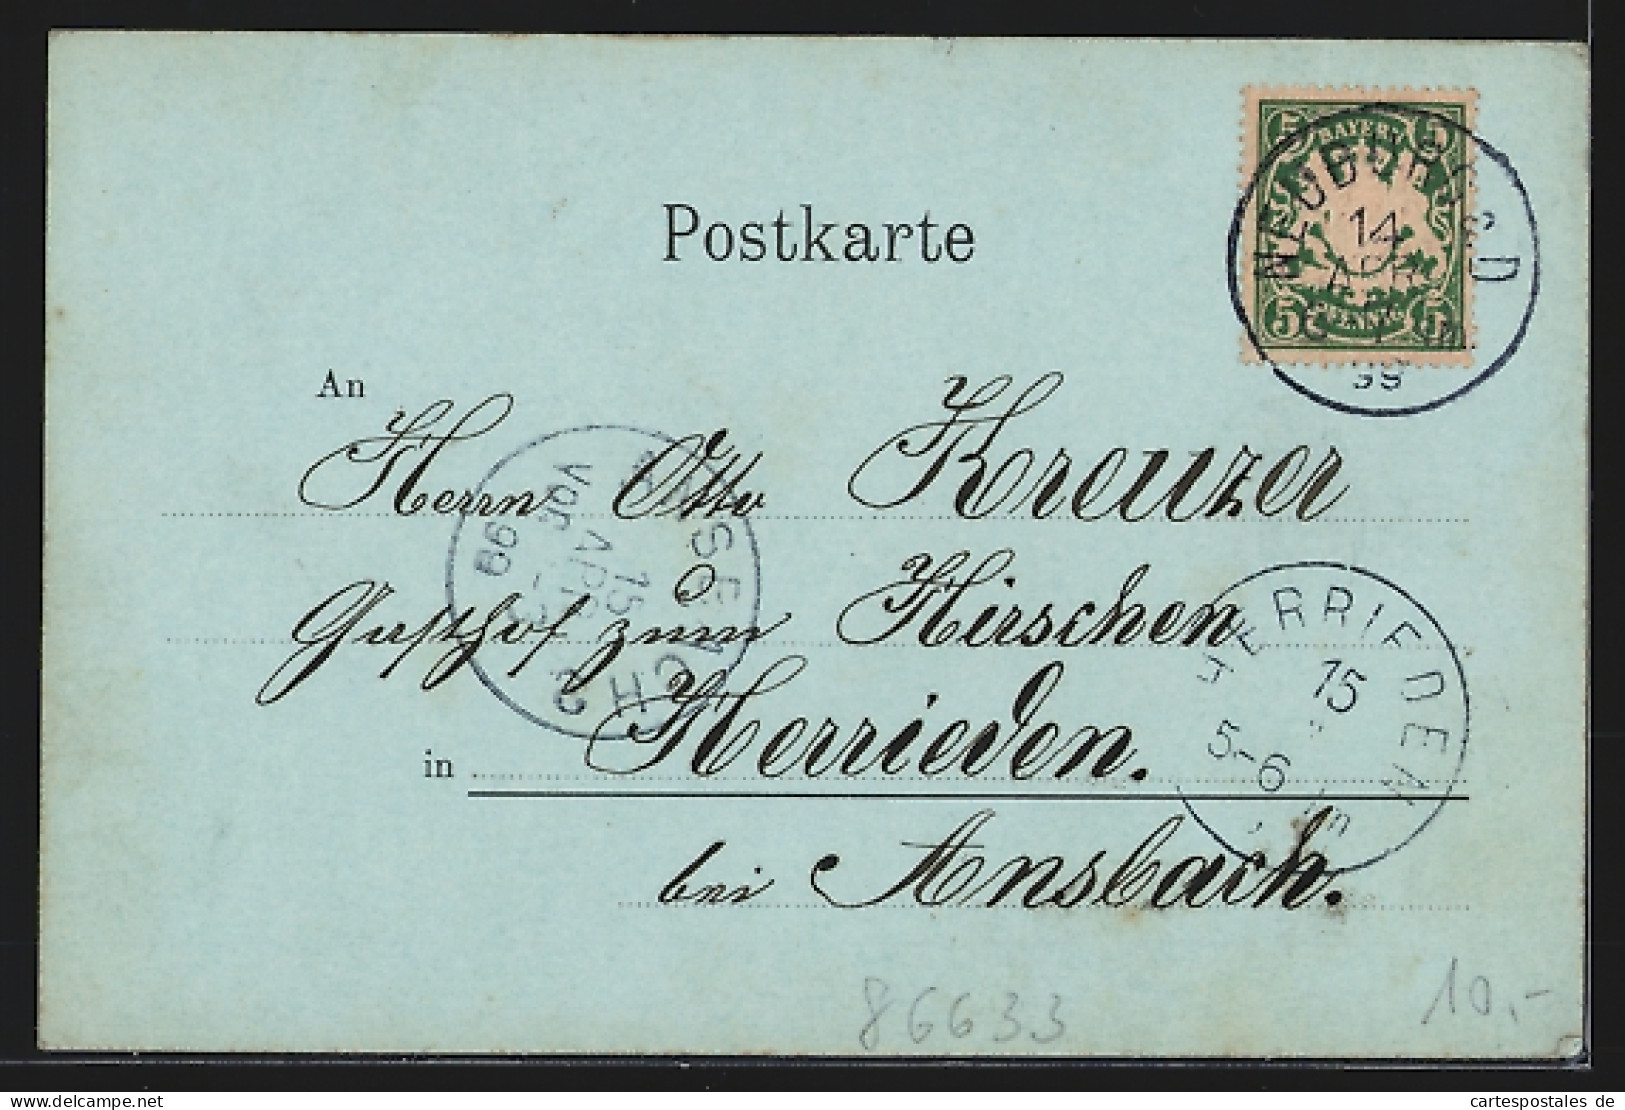 Postkarte
5 BAYERN 5
5 PFENNIG 5
NEUBURG a/D
14
APR
99
An
Herrn Otto Kreuzer
Gasthof zum Hirschen
in Herrieden.
bei Ansbach.
15
APR
Vor.
99
2
HERRIEDEN
15
5-6
86633
10,-
cartespostales de